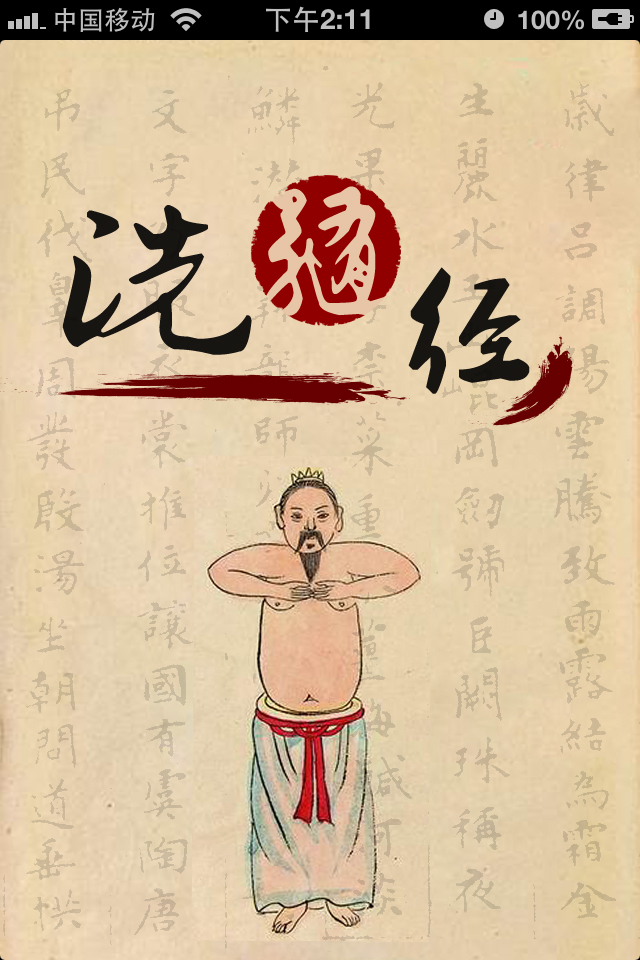 中国移动 下午2:11 100%
洗髓经
歲律呂調陽雲騰致雨露結為霜金
生麗水玉崑岡劍號巨闕珠稱夜
光果柰菜重薑海鹹河淡
鱗潛翔龍師火
文字服衣裳推位讓國有虞陶唐
弔民伐罪周發殷湯坐朝問道垂拱